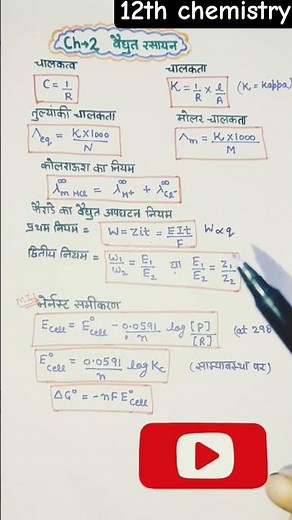 12th chemistry
Ch→2 वैधुत रसायन
चालकत्व चालकता
C = 1/R K = 1/R × l/A (K = Kappa)
तुल्यांकी चालकता मोलर चालकता
Λeq = K×1000/N Λm = K×1000/M
कोलराऊश का नियम
λ∞m HCl = λ∞H+ + λ∞Cl-
फैराडे का वैधुत अपघटन नियम
प्रथम नियम = W = Zit = EIt/F W∝q
द्वितीय नियम = W1/W2 = E1/E2 या E1/E2 = Z1/Z2
नर्नस्ट समीकरण
Ecell = E°cell - 0.0591/n log [P]/[R] (at 298
E°cell = 0.0591/n log Kc (साम्यावस्था पर)
ΔG° = -nFE°cell